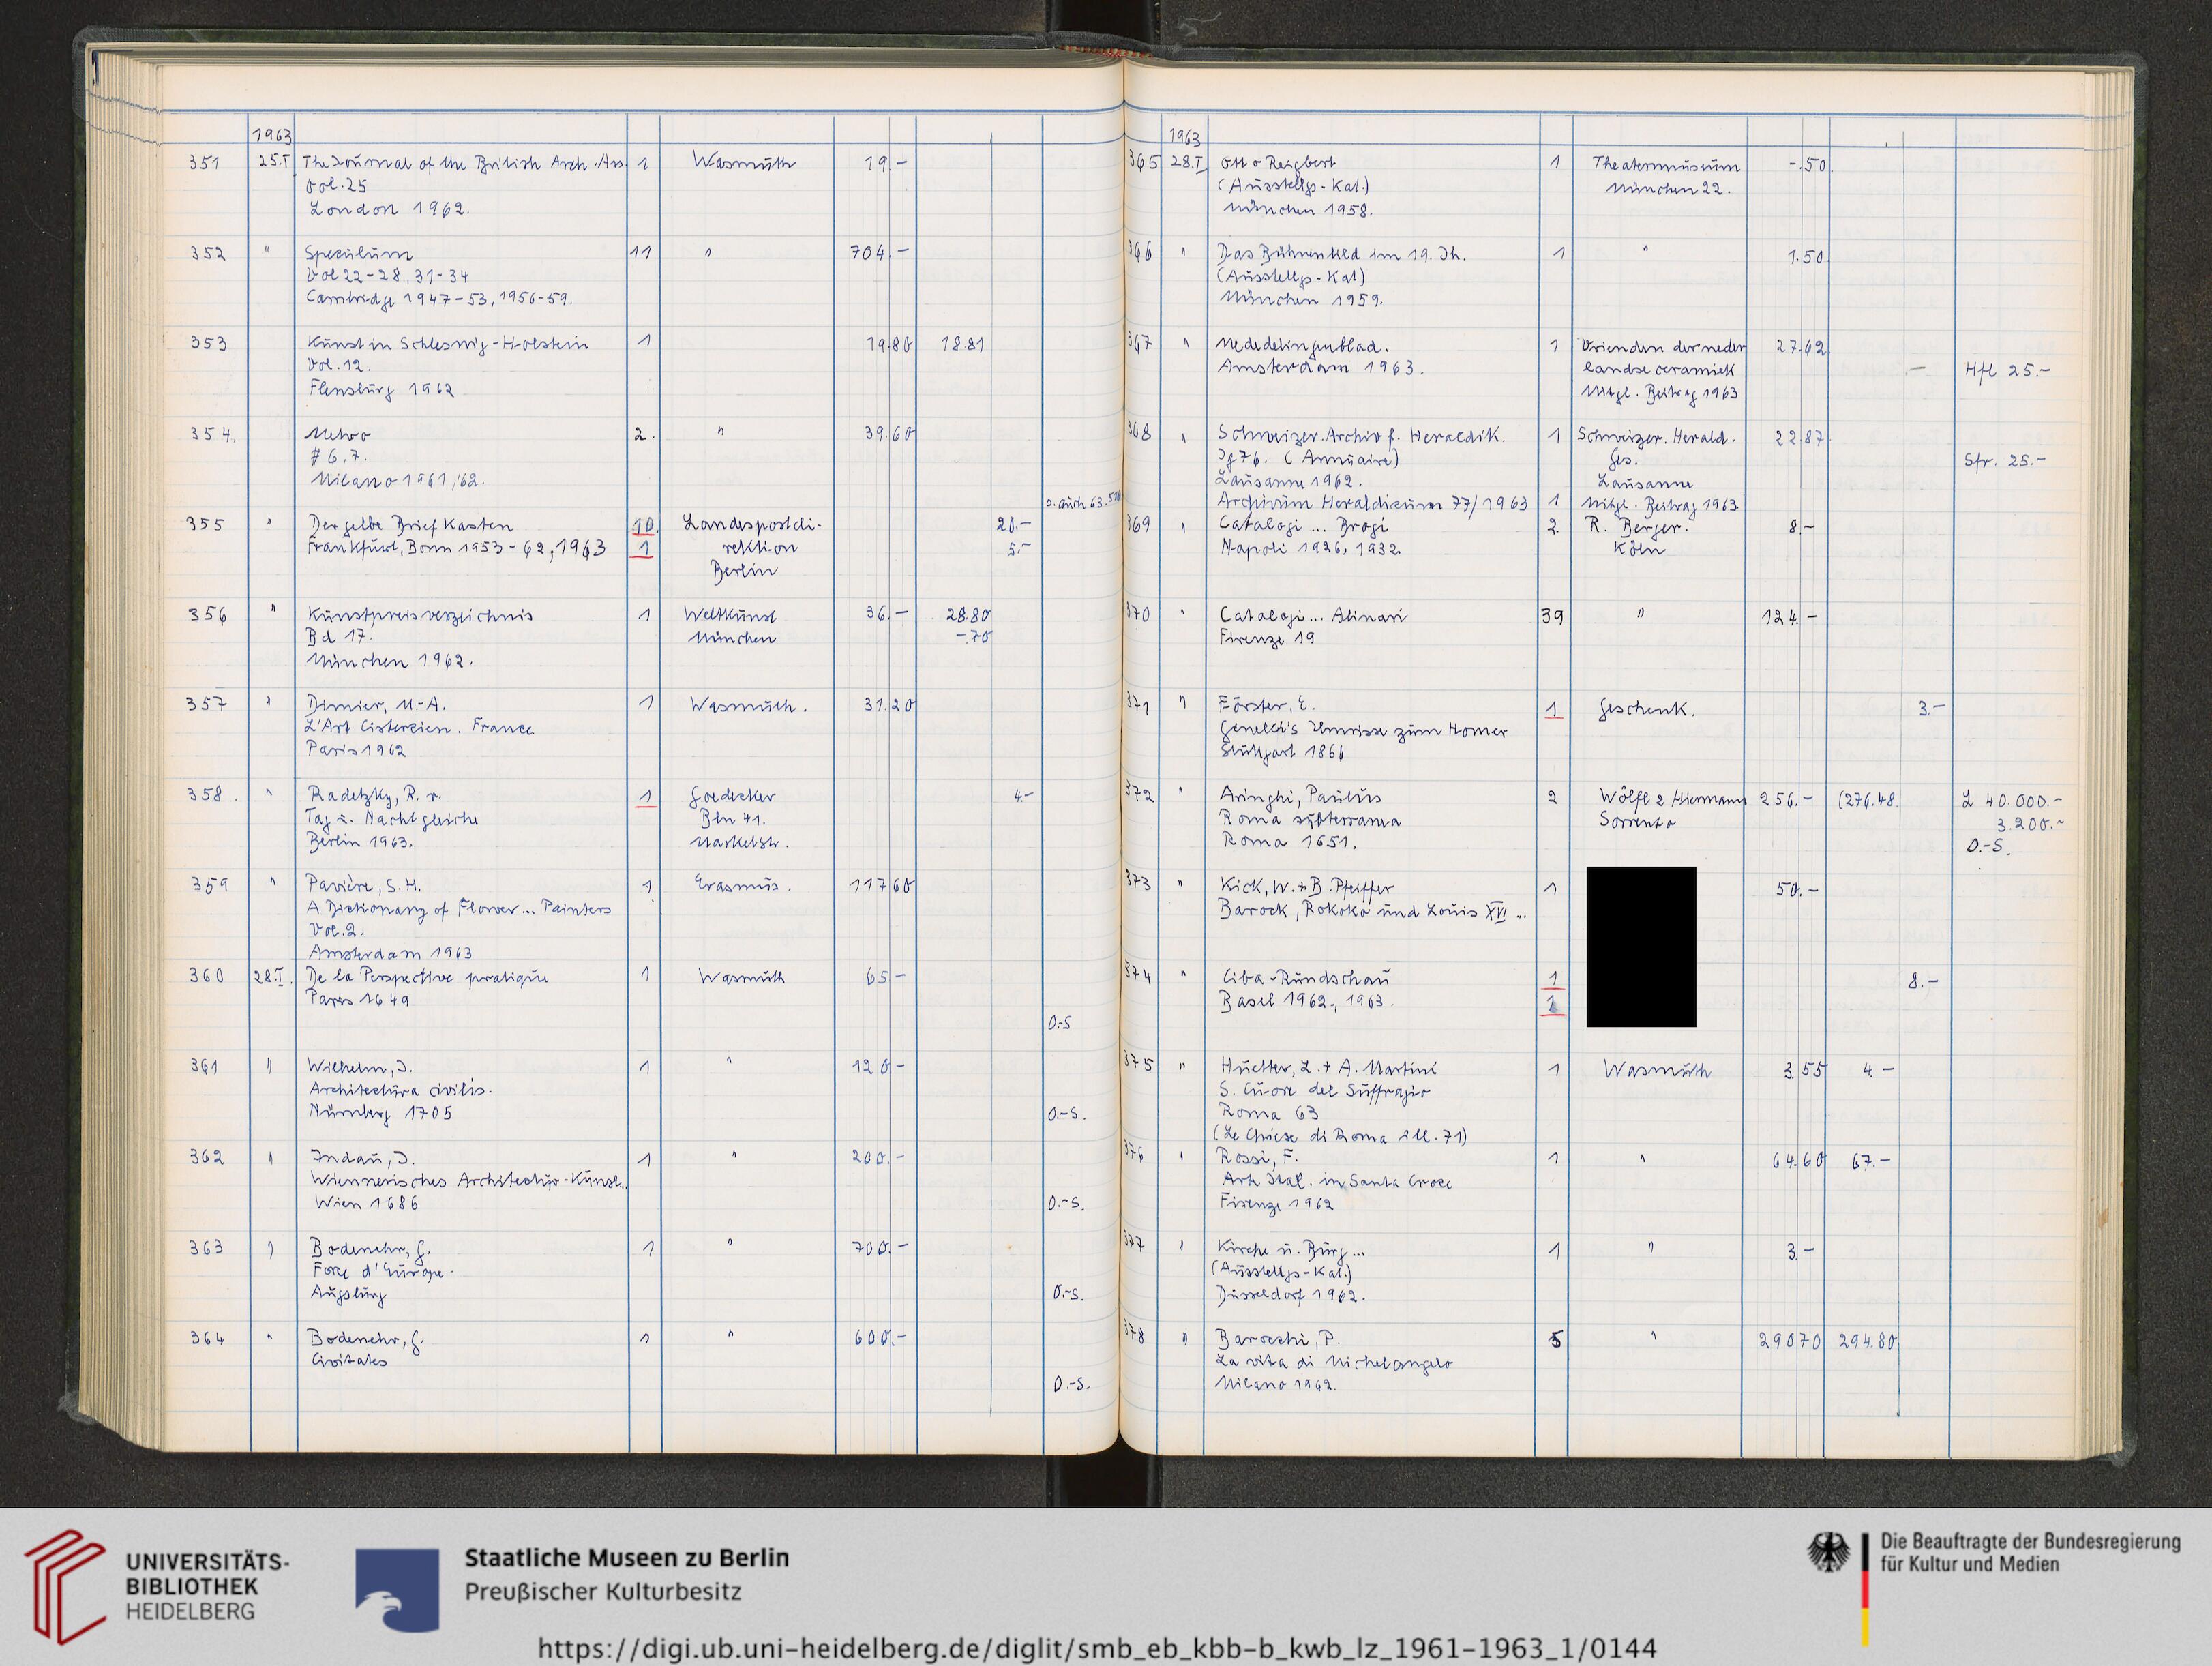 1963
351 25.I The Journal of the British Arch. Ass. 1 Wasmuth 19.–
Vol. 25
London 1962.
352 " Speculum 11 " 704.–
Vol 22-28, 31-34
Cambridge 1947-53, 1956-59.
353 Kunst in Schleswig-Holstein 1 19.80 18.81
Vol. 12.
Flensburg 1962
354. Metro 2. " 39.60
# 6, 7.
Milano 1961/62.
s. auch 63.
355 " Der gelbe Brief Kasten 10 Landespostdi- 20.–
Frankfurt, Bonn 1953-62, 1963 1 rektion 5.–
Berlin
356 " Kunstpreisverzeichnis 1 Weltkunst 36.– 28.80
Bd 17. München –.70
München 1962.
357 " Dimier, M.-A. 1 Wasmuth. 31.20
L'Art Cistercien. France
Paris 1962
358. " Radetzky, R. v. 1 Goedecker 4.–
Tag u. Nachtgleiche Bln 41.
Berlin 1963. Markelstr.
359 " Pavière, S.H. 1 Erasmus. 117.60
A Dictionary of Flower... Painters
Vol. 2.
Amsterdam 1963
360 28.I. De la Perspective pratique 1 Wasmuth 65.–
Paris 1649
O.-S
361 " Wilhelm, J. 1 " 120.–
Architectura civilis.
Nürnberg 1705 O.-S.
362 " Indau, J. 1 " 200.–
Wiennerisches Architectur-Kunst..
Wien 1686 O.-S.
363 " Bodenehr, G. 1 " 700.–
Force d'Europe.
Augsburg O.-S.
364 " Bodenehr, G. 1 " 600.–
Civitates
O.-S.
1963
365 28.I Otto Reigbert 1 Theatermuseum –.50
(Ausstellgs-Kat.) München 22.
München 1958.
366 " Das Bühnenbild im 19. Jh. 1 " 1.50
(Ausstellgs-Kat)
München 1959.
367 " Mededelingenblad. 1 Vrienden der neder 27.62
Amsterdam 1963. landse ceramiek – Hfl 25.–
Mitgl. Beitrag 1963
368 " Schweizer. Archiv f. Heraldik. 1 Schweizer. Herald. 22.87
Jg 76. (Annuaire) Ges. Sfr. 25.–
Lausanne 1962. Lausanne
Archivum Heraldicum 77/1963 1 Mitgl. Beitrag 1963
369 " Catalogi ... Brogi 2 R. Berger. 8.–
Napoli 1926, 1932. Köln
370 " Catalogi ... Alinari 39 " 124.–
Firenze 19
371 " Förster, E. 1 Geschenk. 3.–
Genelli's Umrisse zum Homer
Stuttgart 1866
372 " Aringhi, Paulus 2 Wölfl & Hiermann 256.– (276.48. L 40.000.–
Roma subterranea Sorrento 3.200.–
Roma 1651. O.-S.
373 " Kick, W. + B. Pfeiffer 1 50.–
Barock, Rokoko und Louis XVI ...
374 " Ciba-Rundschau 1 8.–
Basel 1962-, 1963. 1
375 " Huetter, L. + A. Martini 1 Wasmuth 3.55 4.–
S. Cuore del Suffragio
Roma 63
(Le Chiese di Roma ill. 71)
376 " Rossi, F. 1 " 64.60 67.–
Arte Ital. in Santa Croce
Firenze 1962
377 " Kirche u. Burg... 1 " 3.–
(Ausstellgs-Kat.)
Düsseldorf 1962.
378 " Barocchi, P. 5 " 290.70 294.80
La vita di Michelangelo
Milano 1962.
UNIVERSITÄTS-
BIBLIOTHEK
HEIDELBERG
Staatliche Museen zu Berlin
Preußischer Kulturbesitz
Die Beauftragte der Bundesregierung
für Kultur und Medien
https://digi.ub.uni-heidelberg.de/diglit/smb_eb_kbb-b_kwb_lz_1961-1963_1/0144